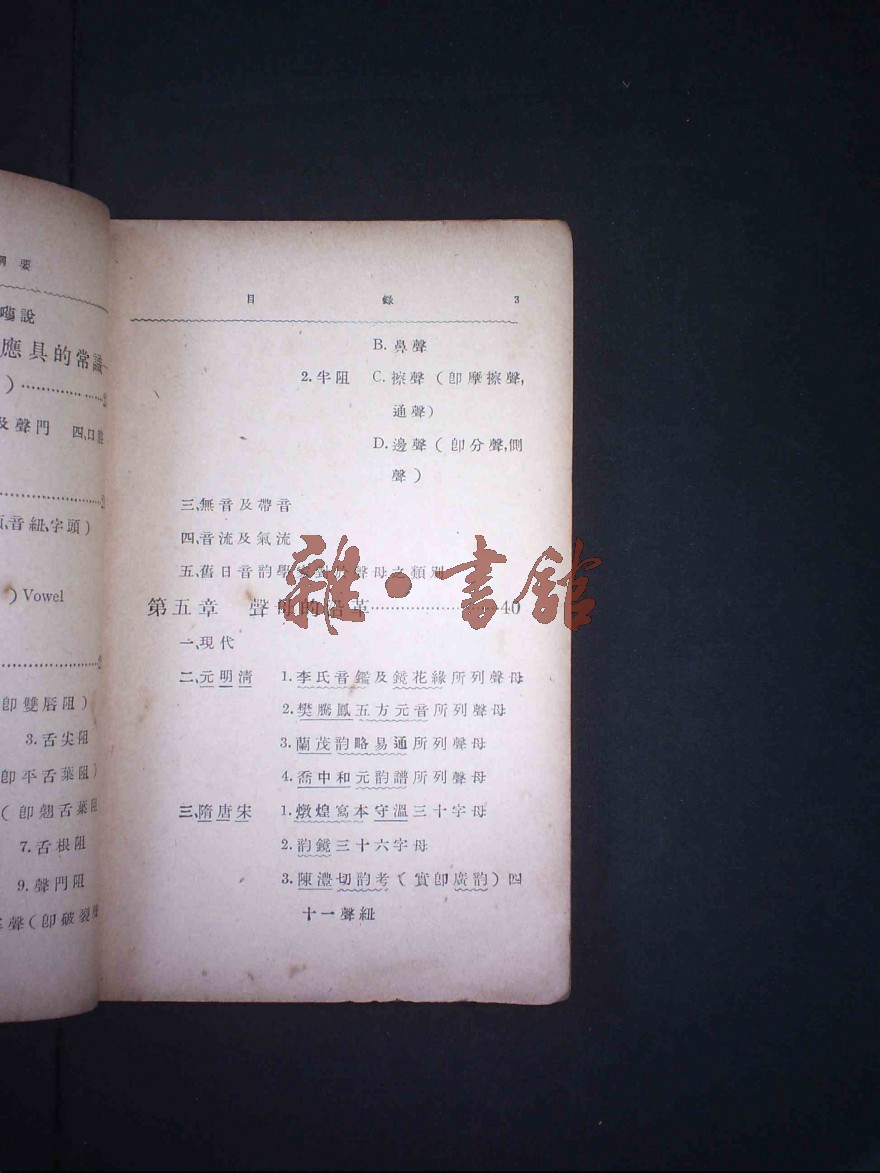 要
說
應具的常識
)
及聲門 四、口腔
音紐、字頭)
) Vowel
卽雙唇阻)
3.舌尖阻
卽平舌葉阻)
(卽翹舌葉阻
7.舌根阻
9.聲門阻
聲(卽破裂聲
目 錄 3
B.鼻聲
2.半阻 C.擦聲(卽摩擦聲,
通聲)
D.邊聲(卽分聲,側
聲)
三、無音及帶音
四、音流及氣流
五、舊日音韵學家對於聲母之類別
第五章 聲母的沿革……………………40
一、現代
二、元明淸 1.李氏音鑑及鏡花緣所列聲母
2.樊騰鳳五方元音所列聲母
3.蘭茂韵略易通所列聲母
4.喬中和元韵譜所列聲母
三、隋唐宋 1.燉煌寫本守溫三十字母
2.韵鏡三十六字母
3.陳澧切韵考(實卽廣韵)四
十一聲紐
雜·書館